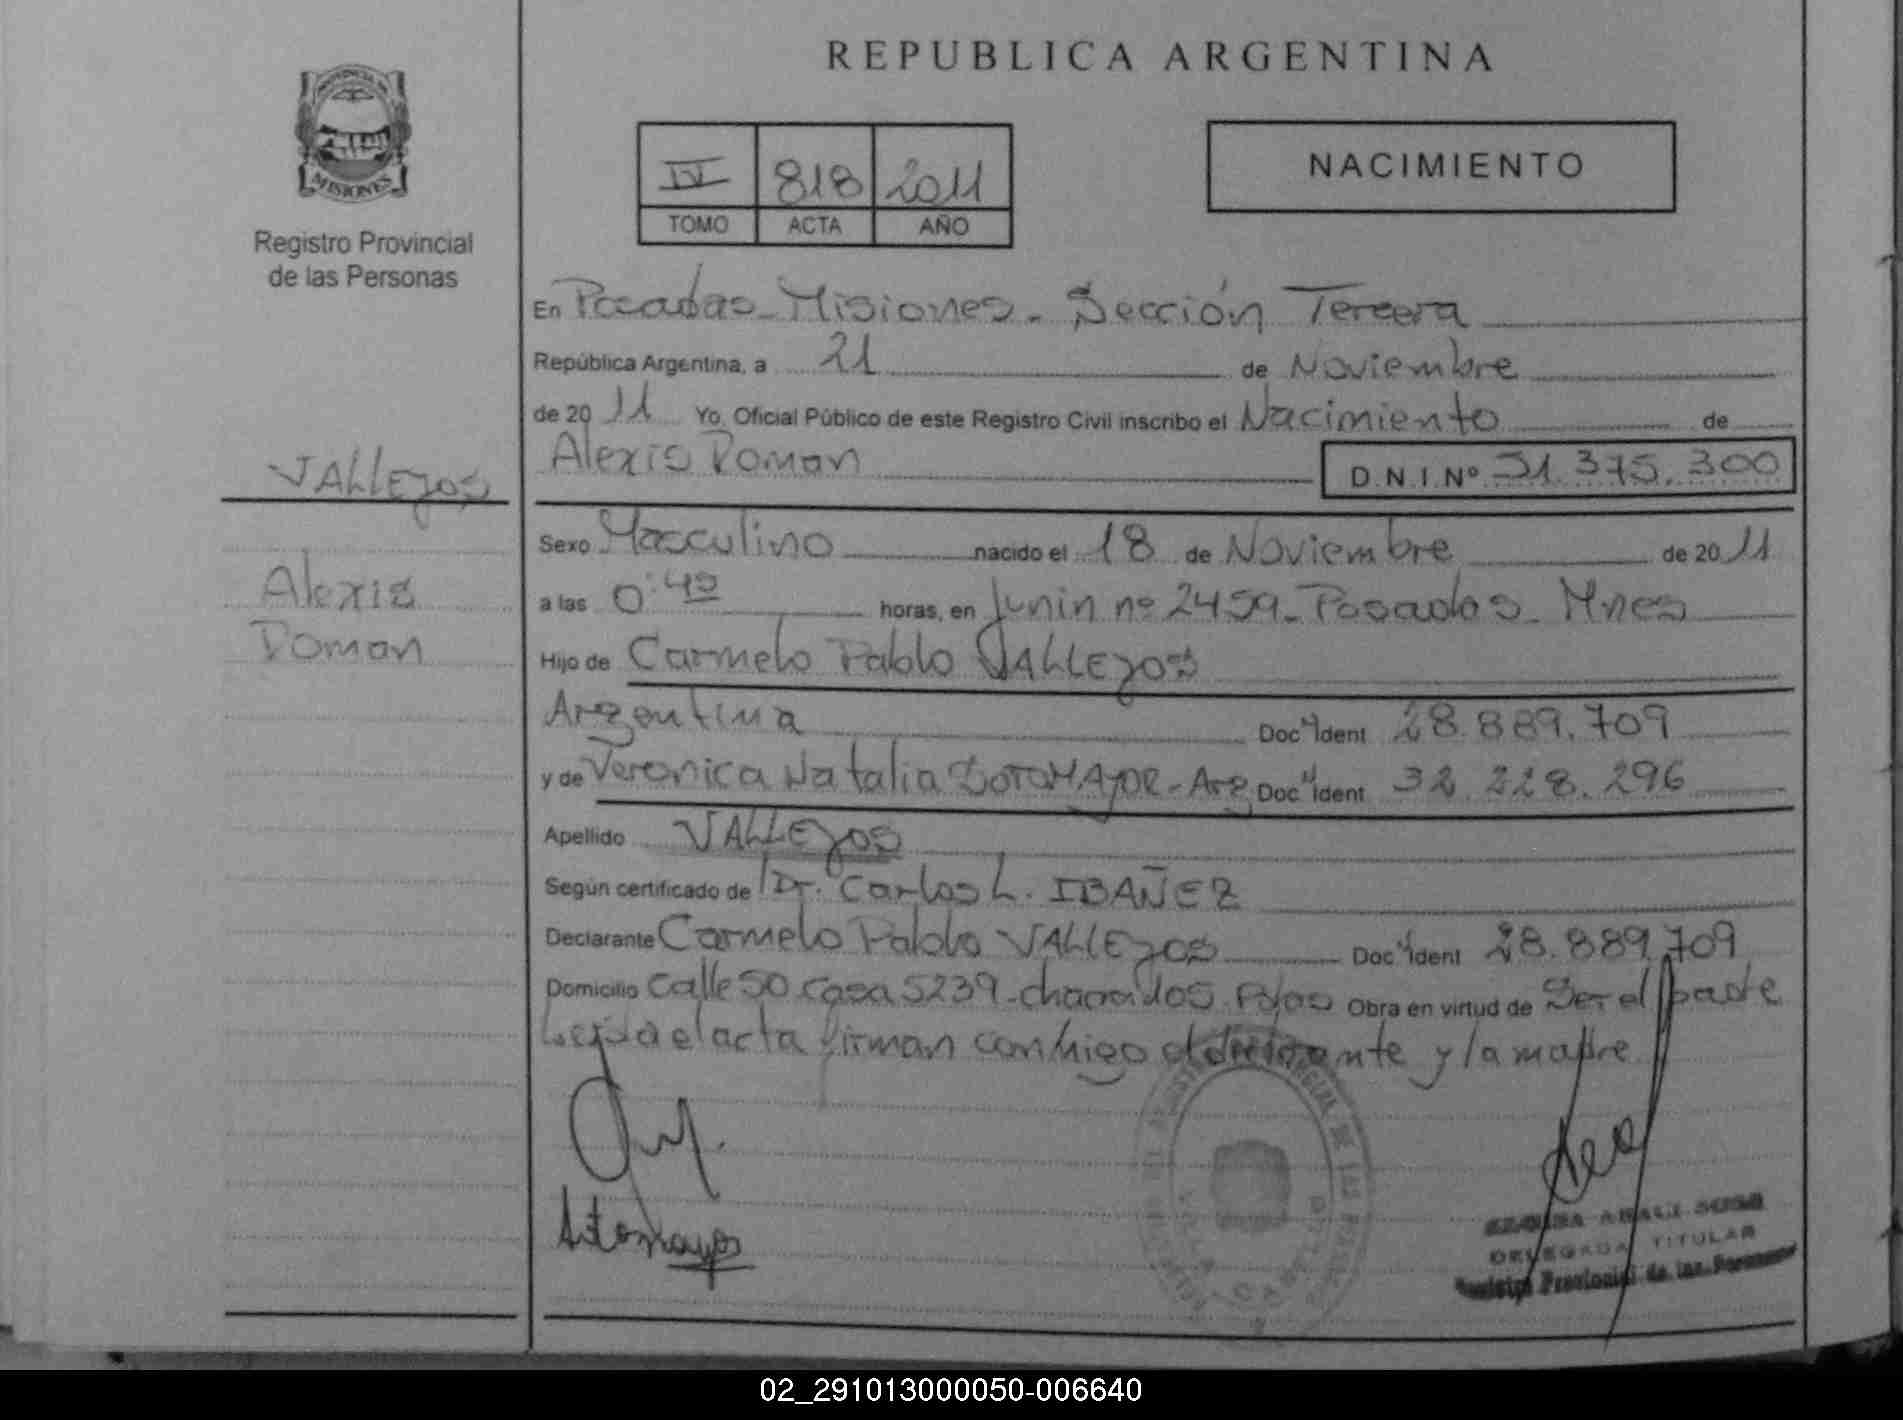 REPUBLICA ARGENTINA
PROVINCIA DE
MISIONES
Registro Provincial
de las Personas
IV 818 2011
TOMO ACTA AÑO
NACIMIENTO
En Posadas - Misiones - Sección Tercera
República Argentina, a 21 de Noviembre
de 2011 Yo, Oficial Público de este Registro Civil inscribo el Nacimiento de
Alexis Roman D.N.I.Nº 51.375.300
VALLEJOS
Alexis
Roman
Sexo Masculino nacido el 18 de Noviembre de 2011
a las 0:45 horas, en Junin nº 2459 - Posadas - Mnes
Hijo de Carmelo Pablo VALLEJOS
Argentina Doc. Ident 28.889.709
y de Veronica Natalia SOTOMAYOR - Arg Doc. Ident 32.228.296
Apellido VALLEJOS
Según certificado de Dr. Carlos L. IBAÑEZ
Declarante Carmelo Pablo VALLEJOS Doc. Ident 28.889.709
Domicilio Calle 50 casa 5239 - Obra en virtud de Ser el padre
Leida el acta firman conmigo el declarante y la madre
Sotomayor
DELEGADA TITULAR
Provincial de las Personas
02_291013000050-006640